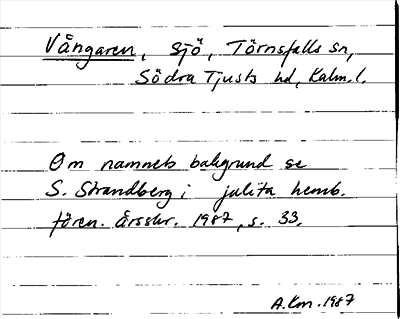 Vångaren, sjö, Törnsfalls sn,
Södra Tjusts hd, Kalm. l.
Om namnets bakgrund se
S. Strandberg i Julita hemb.
fören. årsskr. 1987, s. 33.
A. Km. 1987